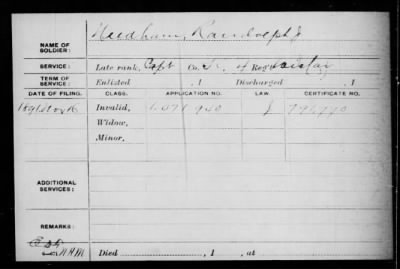 NAME OF SOLDIER: Needham, Randolph J
SERVICE: Late rank, Capt Co. I, Reg't
TERM OF SERVICE: Enlisted , 1 Discharged , 1
DATE OF FILING. CLASS. APPLICATION NO. LAW. CERTIFICATE NO.
1891 Nov 16 Invalid, 1,071,940 J 794,770
Widow,
Minor,
ADDITIONAL SERVICES:
REMARKS:
Died , 1 , at